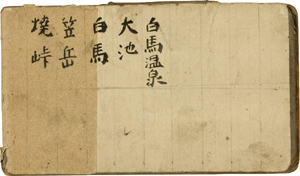 白馬温泉
大池
白馬
笠岳
焼峠